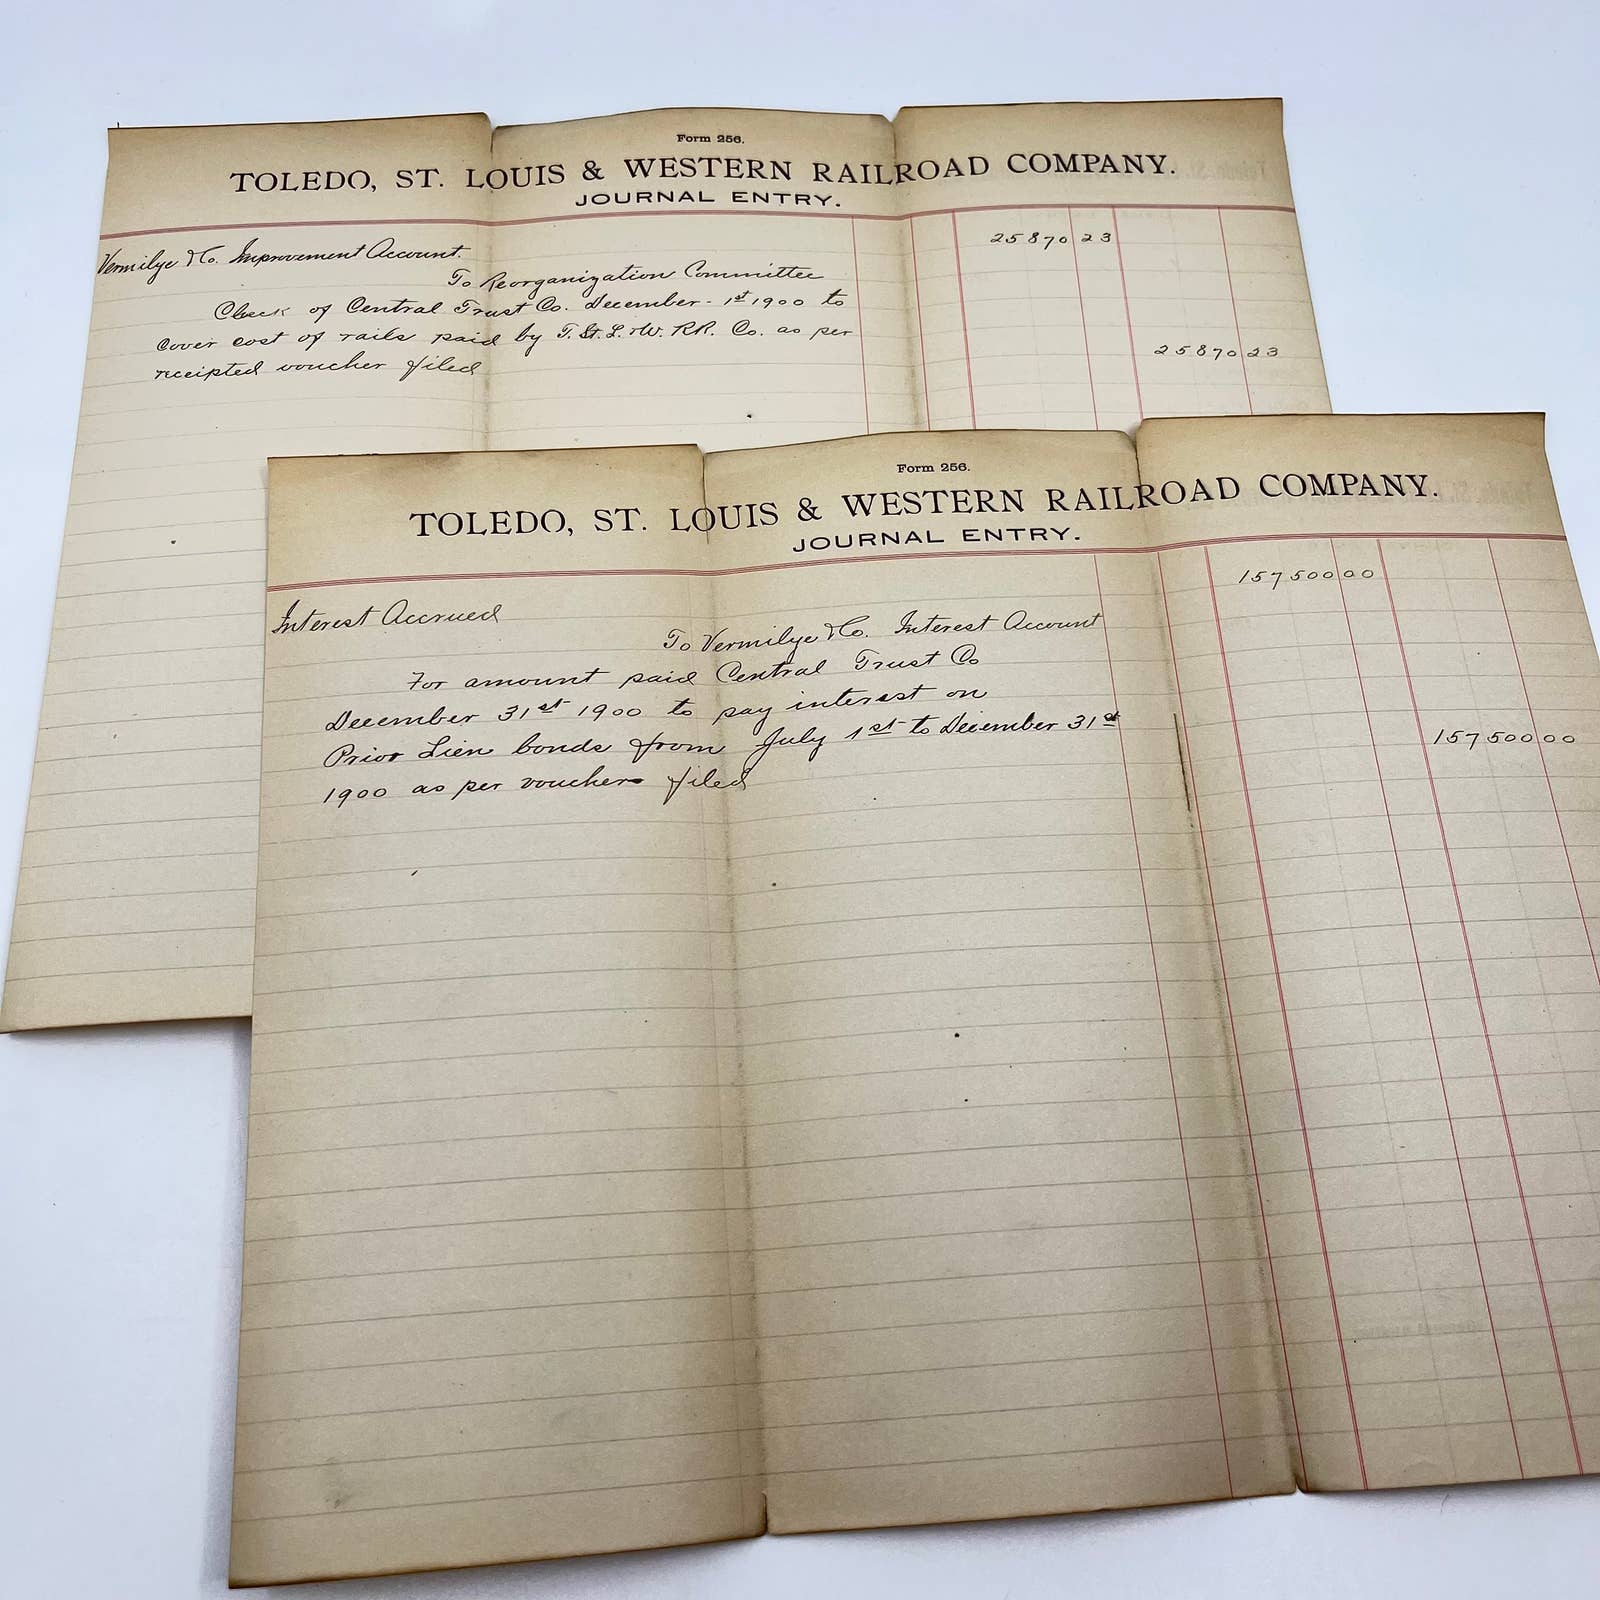 Form 256.
TOLEDO, ST. LOUIS & WESTERN RAILROAD COMPANY.
JOURNAL ENTRY.
Vermilye & Co. Improvement Account. 25870 23
To Reorganization Committee
Check of Central Trust Co. December - 1st 1900 to
cover cost of rails paid by T. St. L. & W. RR. Co. as per
receipted voucher filed 25870 23
Form 256.
TOLEDO, ST. LOUIS & WESTERN RAILROAD COMPANY.
JOURNAL ENTRY.
Interest Accrued 157500 00
To Vermilye & Co. Interest Account
For amount paid Central Trust Co
December 31st 1900 to pay interest on
Prior Lien bonds from July 1st to December 31st
1900 as per vouchers filed 157500 00